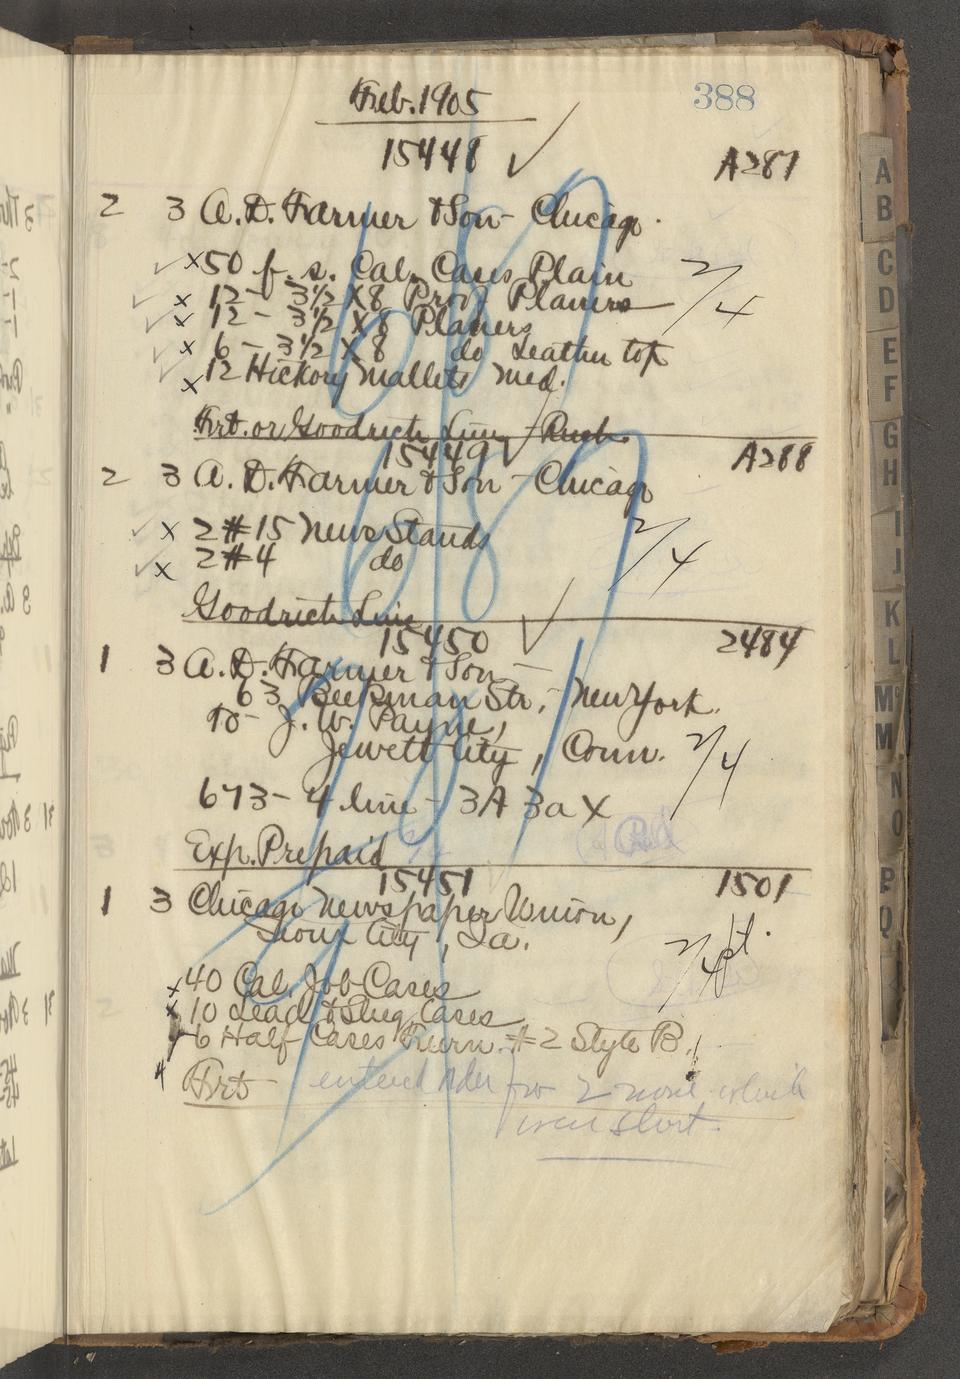 388
Feb. 1905
15448 ✓ A287
2 3 A. D. Farmer & Son - Chicago.
✓ x 50 f. s. Cal. Cases Plain 2/4
✓ x 12 - 3½ X 8 Proof Planers
✓ x 12 - 3½ X 8 Planers
✓ x 6 - 3½ X 8 do Leather top
✓ x 12 Hickory Mallets Med.
Frt. or Goodrich Line - Rush.
15449 ✓ A288
2 3 A. D. Farmer & Son - Chicago
✓ x 2 #15 News Stands 2/4
✓ x 2 #4 do
Goodrich Line
15450 ✓ 2484
1 3 A. D. Farmer & Son -
63 Beekman Str., New York.
to - J. W. Payne,
Jewett City, Conn. 2/4
673 - 4 line - 3A 3a X
Exp. Prepaid
15451 1501
1 3 Chicago Newspaper Union,
Sioux City, Ia.
2/4 pt.
x 40 Cal. Job Cases
x 10 Lead & Slug Cases
6 Half Cases #2 Style B.
4 Frt - entered order for 2 more which
were short.
A
B
C
D
E
F
G
H
I
J
K
L
Mc
M
N
O
P
Q